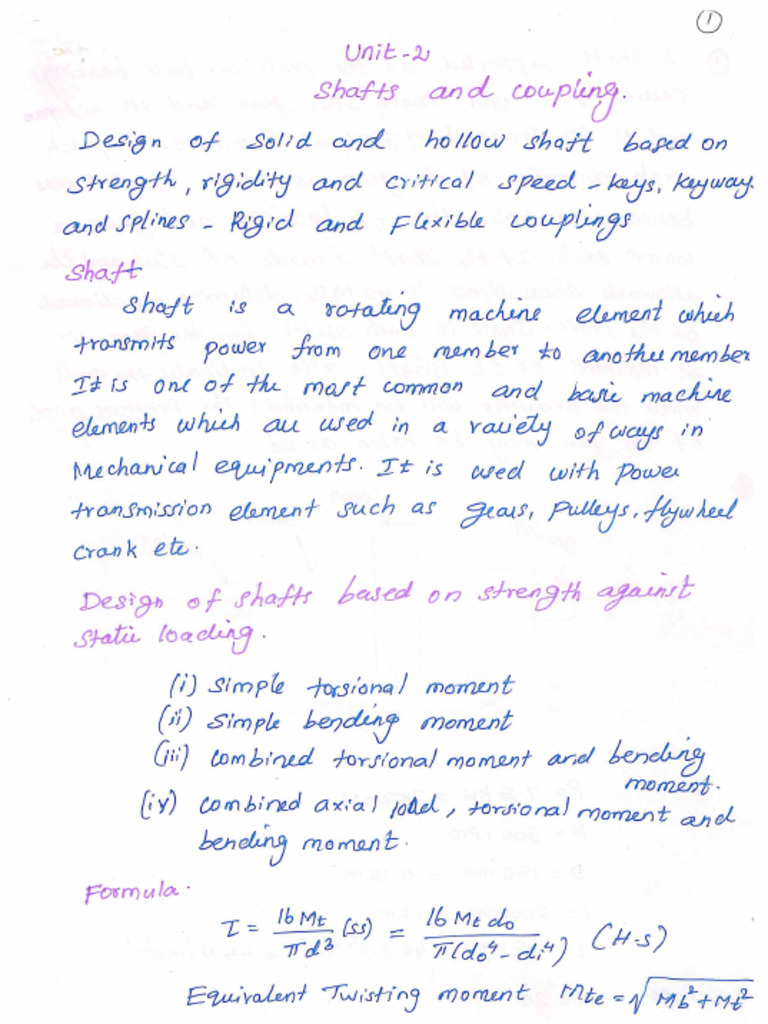 1
Unit-2
Shafts and coupling.
Design of solid and hollow shaft based on
strength, rigidity and critical speed - keys, keyway
and splines - Rigid and Flexible couplings
Shaft
Shaft is a rotating machine element which
transmits power from one member to another member
It is one of the most common and basic machine
elements which are used in a variety of ways in
Mechanical equipments. It is used with power
transmission element such as gears, pulleys, flywheel
crank etc.
Design of shafts based on strength against
static loading.
(i) Simple torsional moment
(ii) Simple bending moment
(iii) combined torsional moment and bending
moment.
(iv) combined axial load, torsional moment and
bending moment.
Formula.
τ = 16 Mt / πd³ (ss) = 16 Mt do / π(do⁴ - di⁴) (H-s)
Equivalent Twisting moment Mte = √Mb² + Mt²